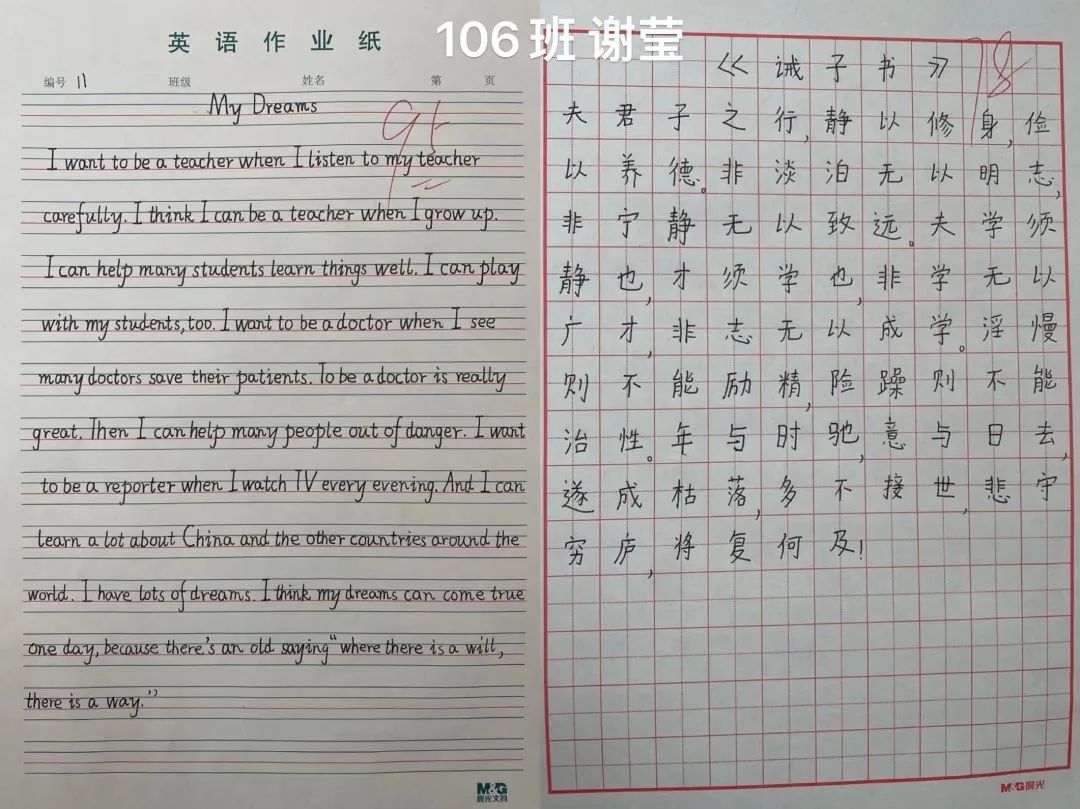 106班 谢莹
英语作业纸
编号 11 班级 姓名 第 页
My Dreams
95
I want to be a teacher when I listen to my teacher
carefully. I think I can be a teacher when I grow up.
I can help many students learn things well. I can play
with my students, too. I want to be a doctor when I see
many doctors save their patients. To be a doctor is really
great. Then I can help many people out of danger. I want
to be a reporter when I watch TV every evening. And I can
learn a lot about China and the other countries around the
world. I have lots of dreams. I think my dreams can come true
one day, because there's an old saying "where there is a will,
there is a way."
M&G
晨光文具
《诫子书》
98
夫君子之行,静以修身,俭
以养德。非淡泊无以明志,
非宁静无以致远。夫学须
静也,才须学也,非学无以
广才,非志无以成学。淫慢
则不能励精,险躁则不能
治性。年与时驰,意与日去,
遂成枯落,多不接世,悲守
穷庐,将复何及!
M&G晨光